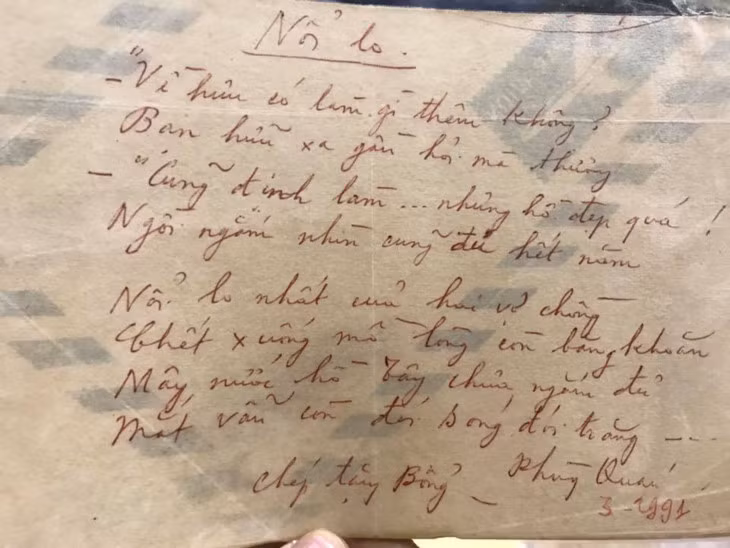 Nỗi lo.
– "Về hưu có làm gì thêm không?
Bạn hữu xa gần hỏi mà thương
– "Cũng định làm... nhưng hồ đẹp quá!
Ngồi ngắm nhìn cũng đủ hết năm
Nỗi lo nhất của hai vợ chồng
Chết xuống mồ lòng còn băng khoăn
Mây nước hồ Tây chưa ngắm đủ
Mắt vẫn còn đói bóng đói trăng ---
Chép tặng Bổng – Phùng Quán
3-1991